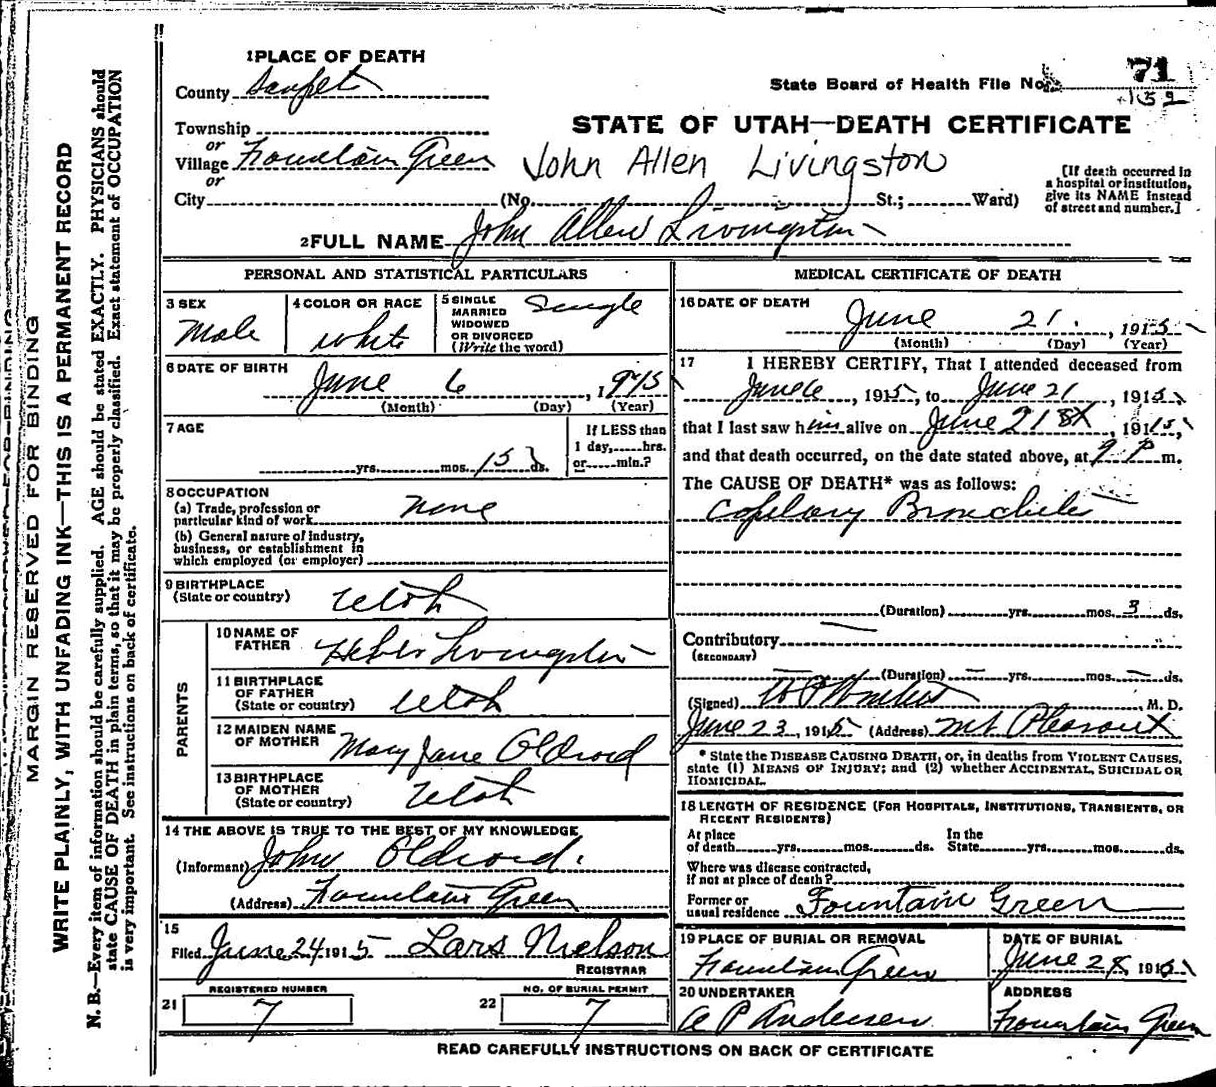 1 PLACE OF DEATH
County Sanpete
State Board of Health File No. 71
159
Township
or
Village Fountain Green
or
City (No. St.; Ward)
STATE OF UTAH—DEATH CERTIFICATE
John Allen Livingston
[If death occurred in
a hospital or institution,
give its NAME instead
of street and number.]
2 FULL NAME John Allen Livingston
PERSONAL AND STATISTICAL PARTICULARS
3 SEX
Male
4 COLOR OR RACE
white
5 SINGLE
MARRIED
WIDOWED
OR DIVORCED
(Write the word)
Single
6 DATE OF BIRTH
June 6, 1915
(Month) (Day) (Year)
7 AGE
yrs. mos. 15 ds.
If LESS than
1 day, hrs.
or min.?
8 OCCUPATION
(a) Trade, profession or
particular kind of work none
(b) General nature of industry,
business, or establishment in
which employed (or employer)
9 BIRTHPLACE
(State or country) Utah
PARENTS
10 NAME OF
FATHER Heber Livingston
11 BIRTHPLACE
OF FATHER
(State or country) Utah
12 MAIDEN NAME
OF MOTHER Mary Jane Oldroyd
13 BIRTHPLACE
OF MOTHER
(State or country) Utah
14 THE ABOVE IS TRUE TO THE BEST OF MY KNOWLEDGE
(Informant) John Oldroyd.
(Address) Fountain Green
15
Filed June 24 1915 Lars Nielson
REGISTRAR
21 REGISTERED NUMBER
7
22 NO. OF BURIAL PERMIT
7
MEDICAL CERTIFICATE OF DEATH
16 DATE OF DEATH
June 21, 1915
(Month) (Day) (Year)
17 I HEREBY CERTIFY, That I attended deceased from
June 6, 1915, to June 21, 1915,
that I last saw him alive on June 21st, 1915,
and that death occurred, on the date stated above, at 9 P m.
The CAUSE OF DEATH* was as follows:
Capilary Bronchitis
(Duration) yrs. mos. 3 ds.
Contributory
(SECONDARY)
(Duration) yrs. mos. ds.
(Signed) M. D.
June 23, 1915 (Address) Mt Pleasant
* State the DISEASE CAUSING DEATH, or, in deaths from VIOLENT CAUSES,
state (1) MEANS OF INJURY; and (2) whether ACCIDENTAL, SUICIDAL OR
HOMICIDAL.
18 LENGTH OF RESIDENCE (FOR HOSPITALS, INSTITUTIONS, TRANSIENTS, OR
RECENT RESIDENTS)
At place
of death yrs. mos. ds.
In the
State yrs. mos. ds.
Where was disease contracted,
if not at place of death?
Former or
usual residence Fountain Green
19 PLACE OF BURIAL OR REMOVAL
Fountain Green
DATE OF BURIAL
June 1915
20 UNDERTAKER
A P Andersen
ADDRESS
Fountain Green
READ CAREFULLY INSTRUCTIONS ON BACK OF CERTIFICATE
MARGIN RESERVED FOR BINDING
WRITE PLAINLY, WITH UNFADING INK—THIS IS A PERMANENT RECORD
N. B.—Every item of information should be carefully supplied. AGE should be stated EXACTLY. PHYSICIANS should
state CAUSE OF DEATH in plain terms, so that it may be properly classified. Exact statement of OCCUPATION
is very important. See instructions on back of certificate.